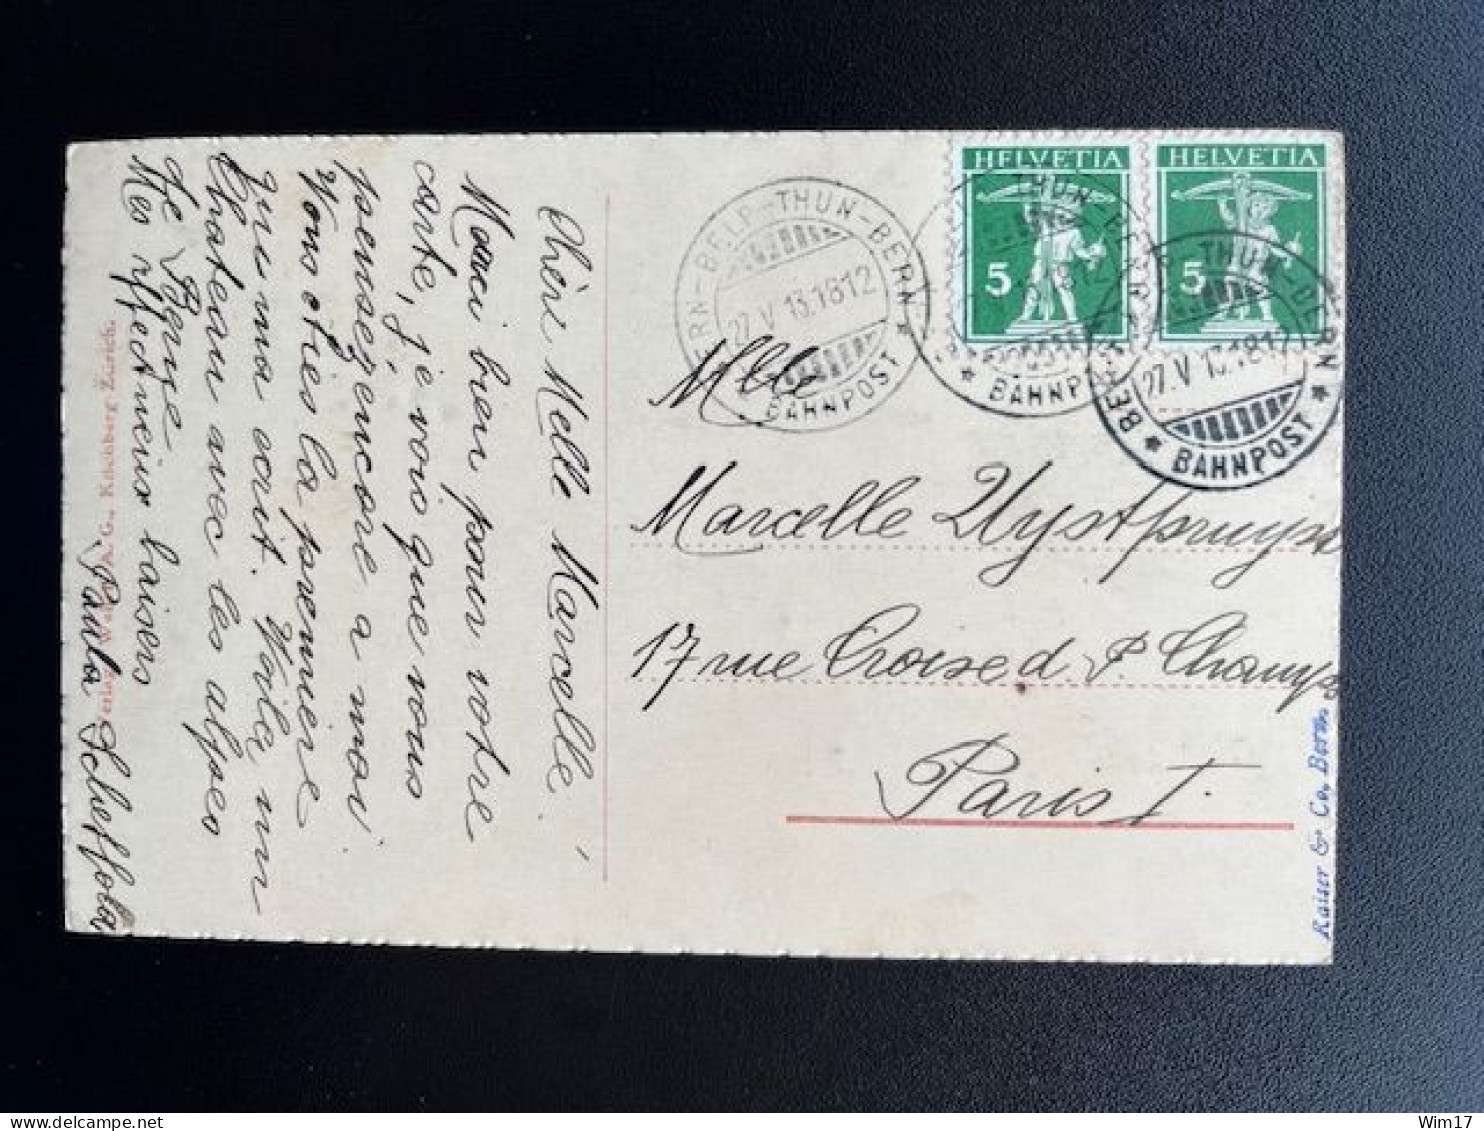 Chère Melle Marcelle.
Merci bien pour votre
carte, je vois que vous
pensez encore a moi
Vous êtes la première
qui ma écrit. Voila un
Chateau avec les alpes
de Berne
Mes affectueux baisers
Paula Scheffola
Verlag Wehrli A.G., Kilchberg-Zürich.
BERN-BELP-THUN-BERN
27.V 13.1812
BAHNPOST
HELVETIA
5
HELVETIA
5
THUN-BERN
BAHNPOST
BERN-BELP-THUN-BERN
27.V 13.1812
BAHNPOST
Mlle
Marcelle Uystpruyst
17 rue Croix d. P. Champs
Paris I.
Kaiser & Co. Bern.
Wim17